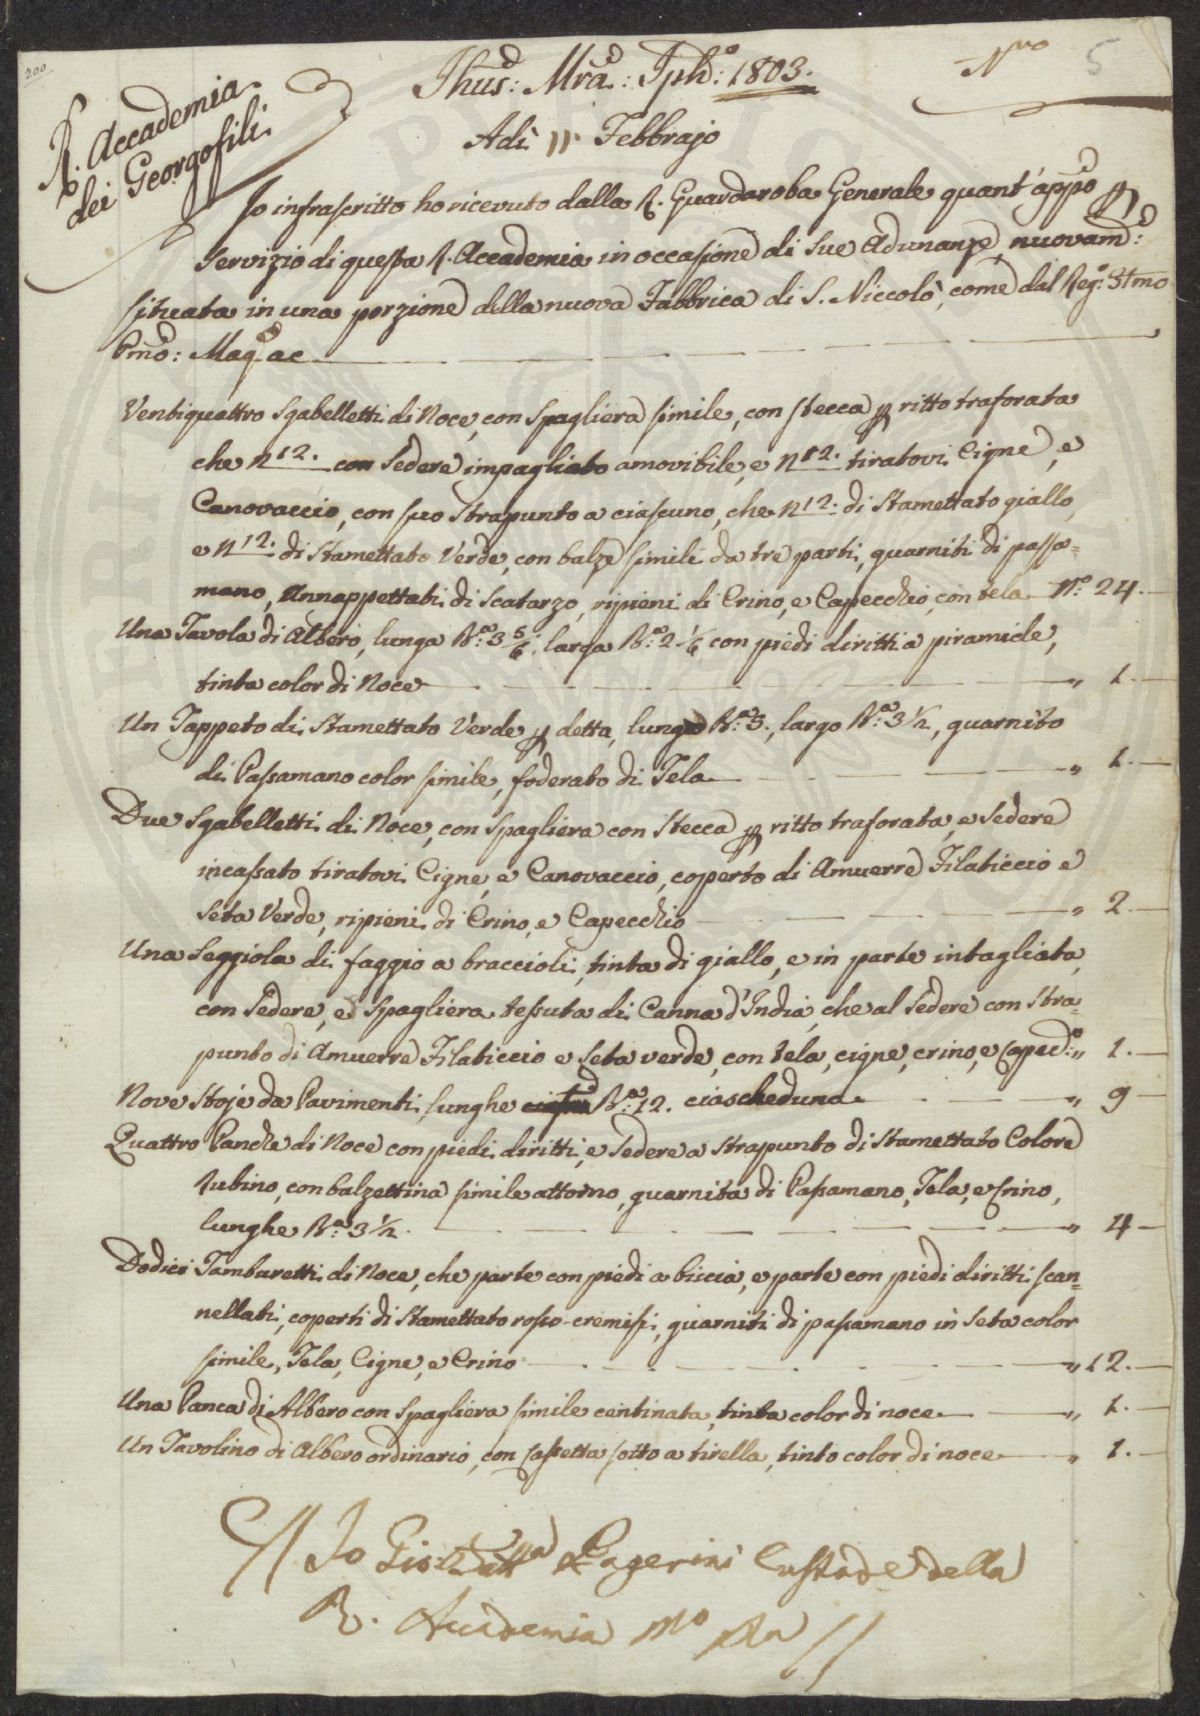 200
Nro 5
Jhus: Mra: Jphd: 1803.
R. Accademia
dei Georgofili
Adì 11 Febbrajo
Io infrascritto ho ricevuto dalla R. Guardaroba Generale quant'appo
Servizio di questa R. Accademia in occasione di Sue Adunanze, nuovam:
situata in una porzione della nuova Fabbrica di S. Niccolò, come dal Reg:
Pmo:
Ventiquattro Sgabelletti di Noce, con Spagliera simile, con stecca p ritto traforata
che n 12. con Sedere impagliato amovibile, e n 12. tiratovi Cigne, e
Canovaccio, con suo Strapunto a ciascuno, che n 12. di Stamettato giallo,
e n 12. di Stamettato Verde, con balze simili da tre parti, guarniti di passa=
mano, Annappettati di Scatarzo, ripieni di Crino, e Capecchio, con tela N.o 24.
Una Tavola di Albero, lunga Ba: 3 5/6. larga Ba: 2 1/6 con piedi diritti a piramide,
tinta color di Noce " 1.
Un Tappeto di Stamettato Verde p detta, lungo Ba: 5., largo Ba: 3 1/2, guarnito
di Passamano color simile, foderato di Tela " 1.
Due Sgabelletti di Noce, con Spagliera con Stecca p ritto traforata, e Sedere
incassato tiratovi Cigne, e Canovaccio, coperto di Amuerre Filaticcio e
Seta Verde, ripieni di Crino, e Capecchio " 2.
Una Seggiola di faggio a braccioli, tinta di giallo, e in parte intagliata,
con Sedere, e Spagliera tessuta di Canna d'India, che al Sedere con Stra=
punto di Amuerre Filaticcio e Seta verde, con tela, cigne, crino, e Capecc:o " 1.
Nove Stoje da Pavimenti, lunghe Ba: 12. ciascheduna " 9
Quattro Panche di Noce con piedi diritti, e Sedere a Strapunto di Stamettato Colore
Rubino, con balzettina simile attorno, guarnita di Passamano, Tela, e Crino,
lunghe Ba: 3 1/2. " 4
Dodici Tamburetti di Noce, che parte con piedi a biccia, e parte con piedi diritti scan=
nellati, coperti di Stamettato rosso-cremisi, guarniti di passamano in Seta color
simile, Tela, Cigne, e Crino " 12.
Una Panca di Albero con Spagliera simile centinata, tinta color di noce " 1.
Un Tavolino di Albero ordinario, con Cassetta sotto a tirella, tinto color di noce " 1.
Io Gio: Batta Custode della
R. Accademia Mo Pa